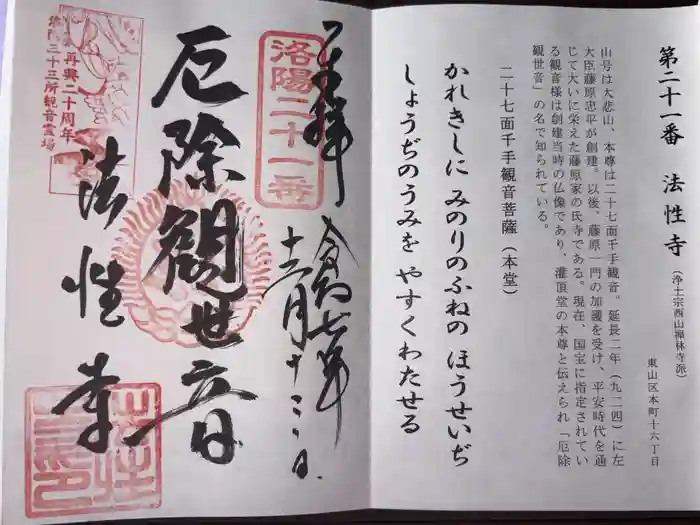 第二十一番 法性寺(浄土宗西山禅林寺派)
東山区本町十六丁目
山号は大悲山、本尊は二十七面千手観音。延長二年(九二四)に左
大臣藤原忠平が創建。以後、藤原一門の加護を受け、平安時代を通
じて大いに栄えた藤原家の氏寺である。現在、国宝に指定されてい
る観音様は創建当時の仏像であり、灌頂堂の本尊と伝えられ「厄除
観世音」の名で知られている。
二十七面千手観音菩薩(本堂)
かれきしに みのりのふねの ほうせいぢ
しょうぢのうみを やすくわたせる
奉拝 令和七年
十二月十三日
洛陽二十一番
厄除観世音
法性寺
再興二十周年
洛陽三十三所観音霊場